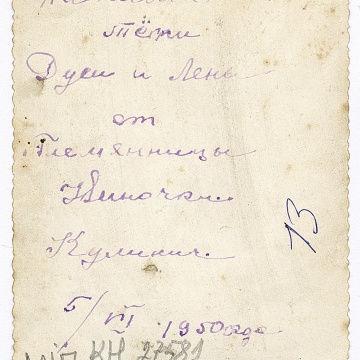 тёти
Дуси и Лени
от
Племянницы
Ниночки
Кулинич.
5/VII 1950 года
КН 27581
13